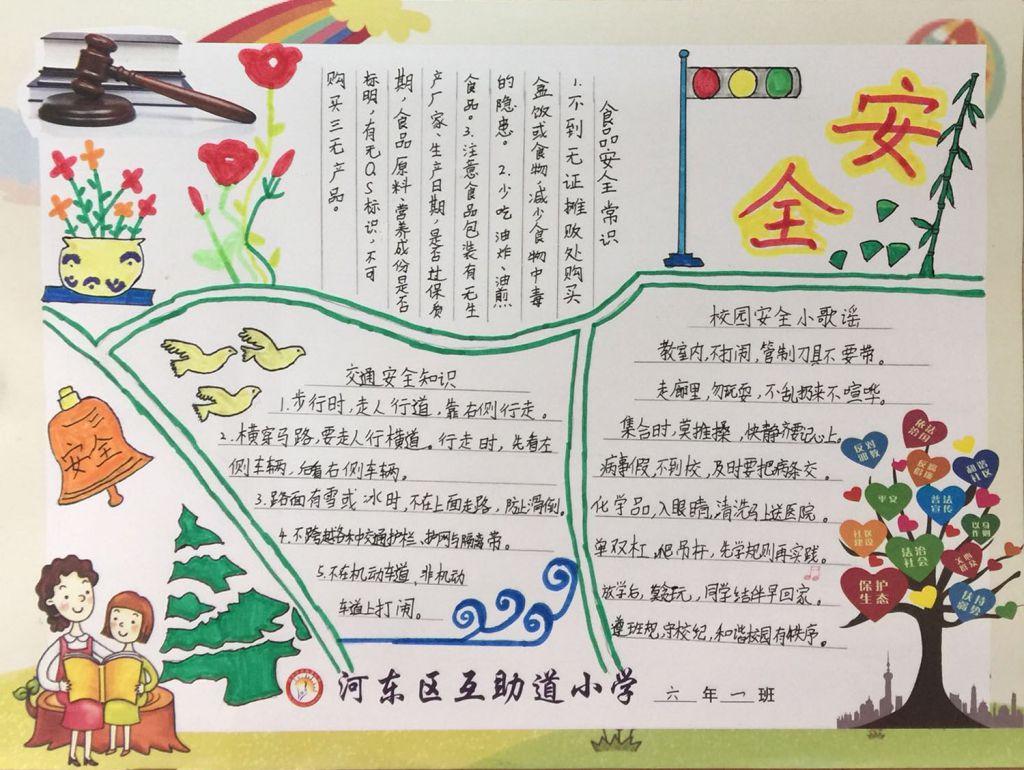 安全
食品安全常识
1.不到无证摊贩处购买
盒饭或食物,减少食物中毒
的隐患。2.少吃油炸、油煎
食品。3.注意食品包装有无生
产厂家、生产日期,是否过保质
期,食品原料、营养成份是否
标明,有无QS标识,不可
购买三无产品。
安全
交通安全知识
1.步行时,走人行道,靠右侧行走。
2.横穿马路,要走人行横道。行走时,先看左
侧车辆,后看右侧车辆。
3.路面有雪或冰时,不在上面走路,防止滑倒。
4.不跨越各种交通护栏、护网与隔离带。
5.不在机动车道、非机动
车道上打闹。
校园安全小歌谣
教室内,不打闹,管制刀具不要带。
走廊里,勿玩耍,不乱扔来不喧哗。
集合时,莫推搡,快静齐要记心上。
病事假,不到校,及时要把病条交。
化学品,入眼睛,清洗马上送医院。
单双杠,爬吊杆,先学规则再实践。
放学后,莫贪玩,同学结伴早回家。
遵班规,守校纪,和谐校园有秩序。
依法
治国
反对
邪教
反腐
倡廉
和谐
社区
平安
普法
宣传
社区
建设
法治
社会
以身
作则
关心
群众
保护
生态
扶持
弱势
河东区互助道小学 六年一班